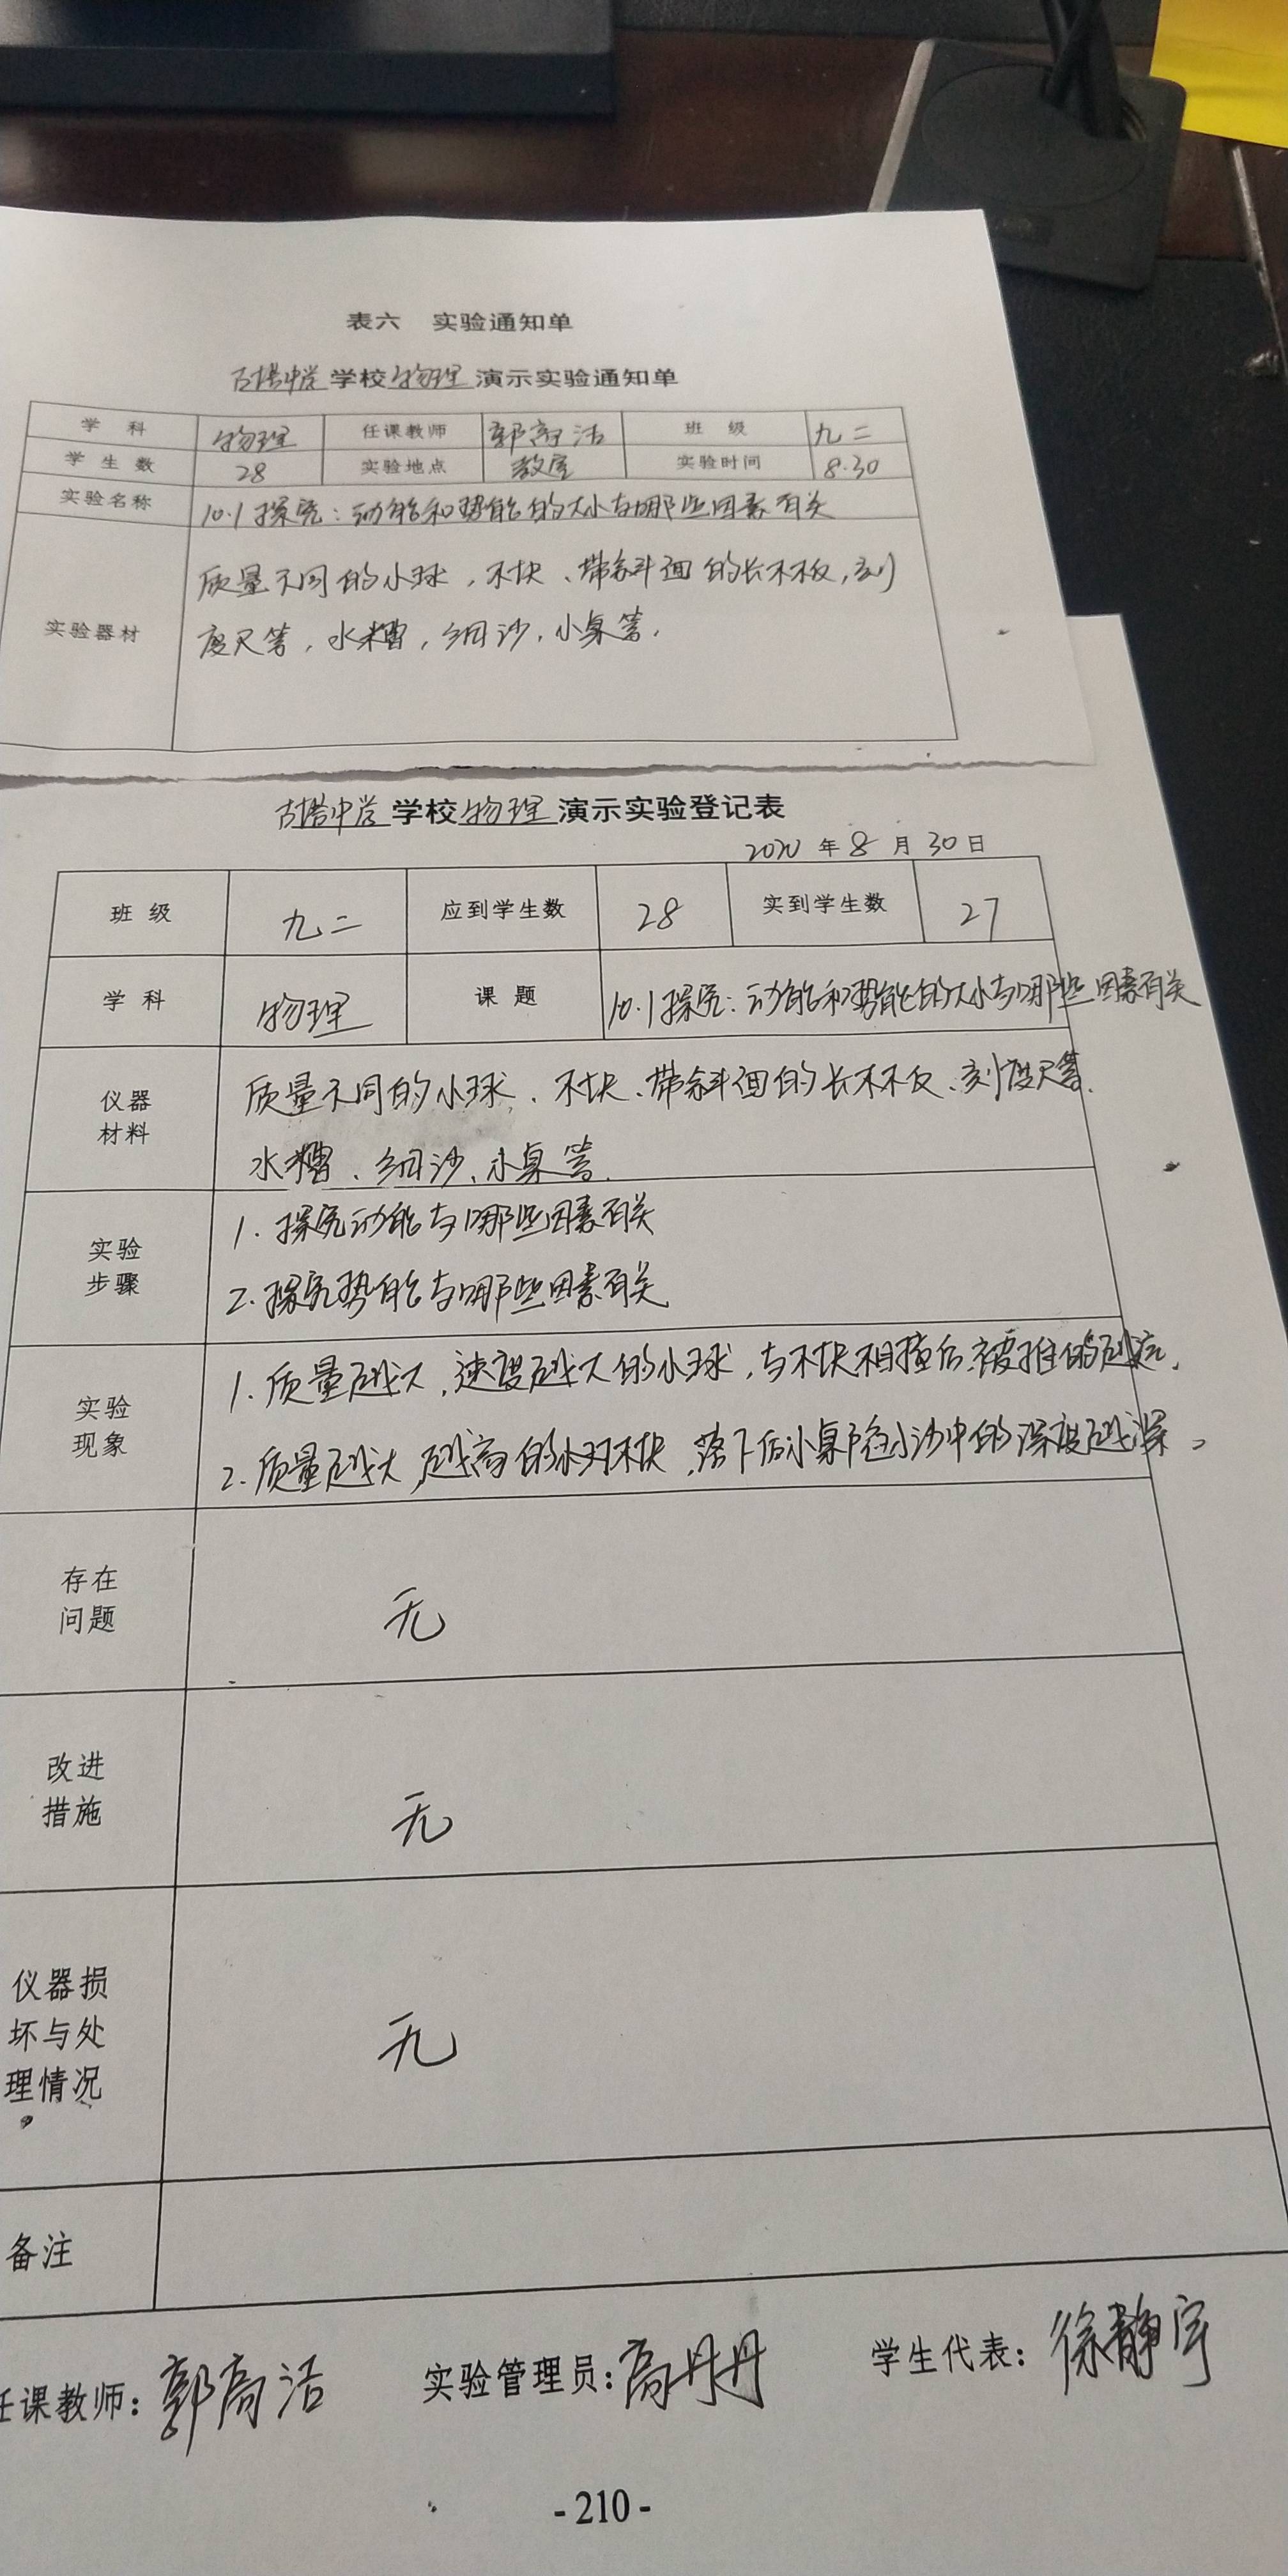 表六 实验通知单
古塔中学 学校 物理 演示实验通知单
学科 物理 任课教师 郭高洁 班级 九二
学生数 28 实验地点 教室 实验时间 8.30
实验名称 10.1 探究：动能和势能的大小与哪些因素有关
实验器材 质量不同的小球，木块、带斜面的长木板，刻
度尺等，水槽，细沙，小桌等.
古塔中学 学校 物理 演示实验登记表
2020 年 8 月 30 日
班级 九二 应到学生数 28 实到学生数 27
学科 物理 课题 10.1 探究：动能和势能的大小与哪些因素有关
仪器
材料
质量不同的小球、木块、带斜面的长木板、刻度尺等.
水槽、细沙、小桌等.
实验
步骤
1. 探究动能与哪些因素有关
2. 探究势能与哪些因素有关
实验
现象
1. 质量越大，速度越大的小球，与木块相撞后被推的越远.
2. 质量越大，越高的木块，落下后小桌陷沙中的深度越深。
存在
问题
无
改进
措施
无
仪器损
坏与处
理情况
无
备注
任课教师：郭高洁 实验管理员：高丹丹 学生代表：徐静宇
-210-